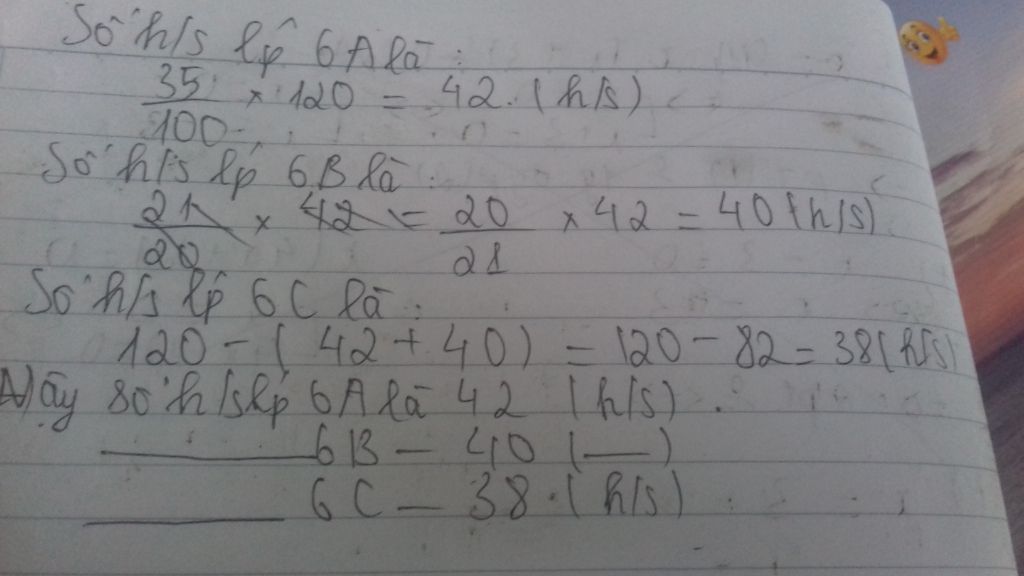 Số h/s lp 6A là :
35/100 × 120 = 42 (h/s)
Số h/s lp 6B là :
21/20 × 42 = 20/21 × 42 = 40 (h/s)
Số h/s lp 6C là :
120 - ( 42 + 40 ) = 120 - 82 = 38 (h/s)
Vậy số h/s lp 6A là 42 (h/s) .
6B — 40 ( — )
6C — 38 (h/s)